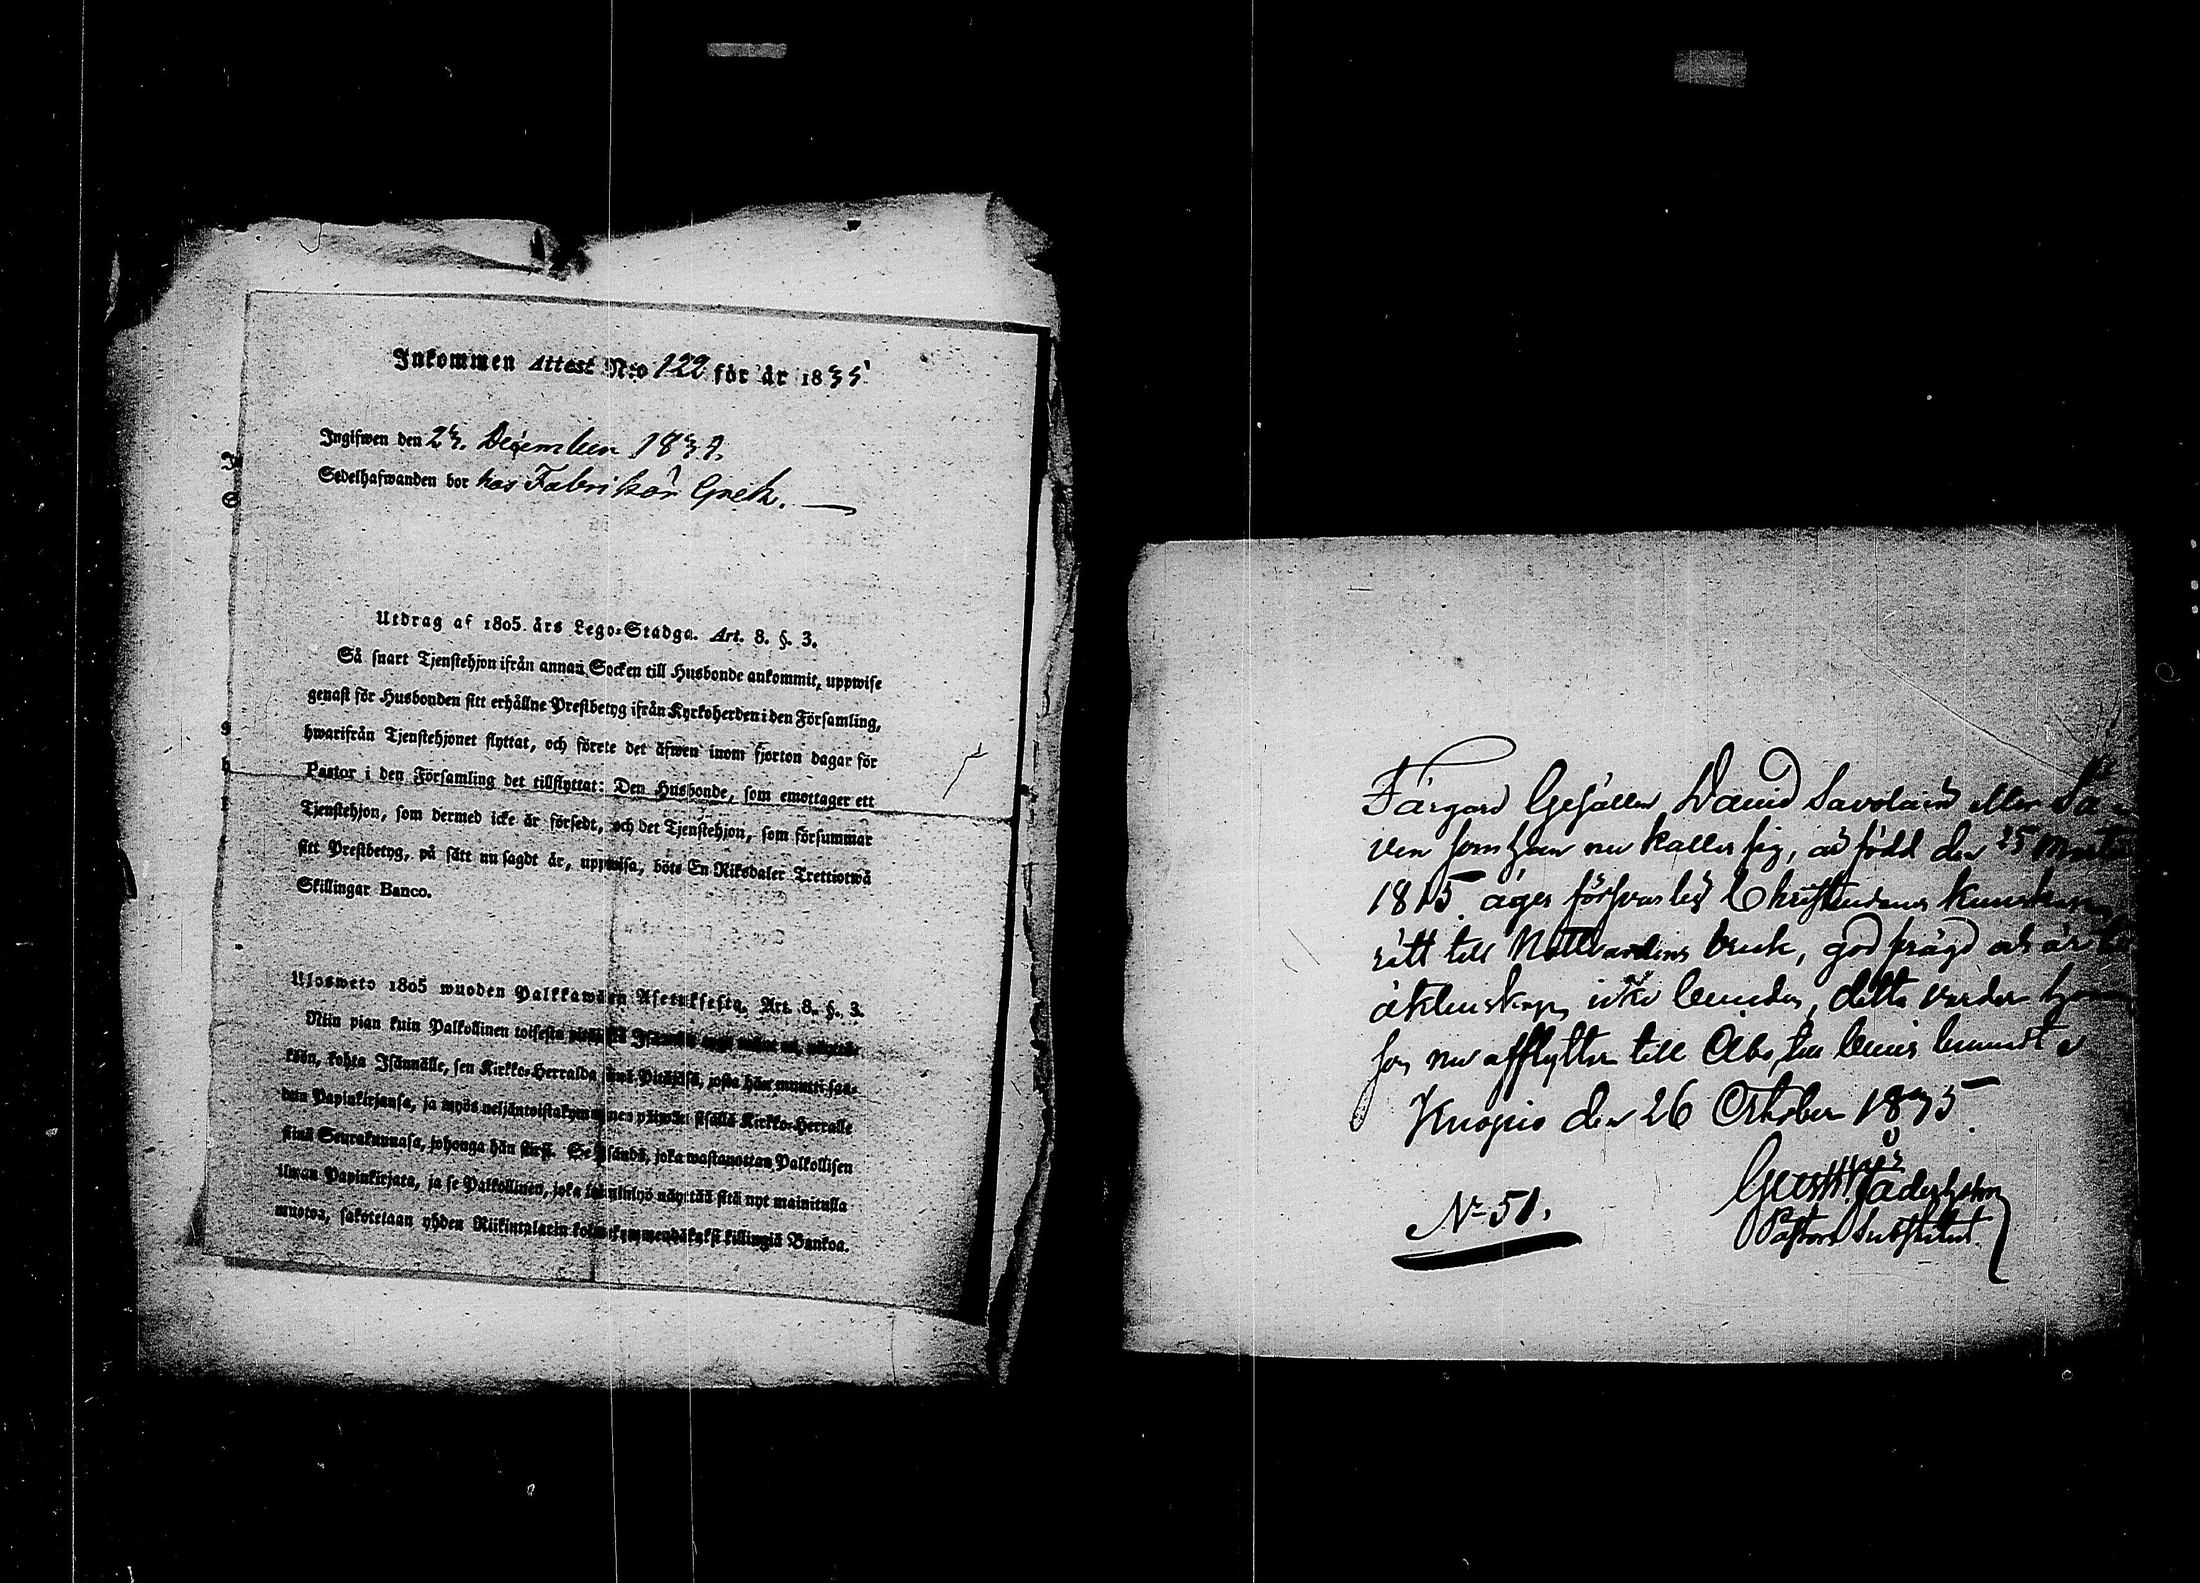 Inkommen Attest N:o 122 för år 1835
Ingifwen den 23. December 1837.
Sedelhafwanden bor hos Fabrikör Grek.
Utdrag af 1805 års Lego-Stadga. Art. 8. §. 3.
Så snart Tjenstehjon ifrån annan Socken till Husbonde ankommit, uppwise
genast för Husbonden sitt erhållne Prestbetyg ifrån Kyrkoherden i den Församling,
hwarifrån Tjenstehjonet flyttat, och förete det äfwen inom fjorton dagar för
Pastor i den Församling det tillflyttat: Den Husbonde, som emottager ett
Tjenstehjon, som dermed icke är försedt, och det Tjenstehjon, som försummar
sitt Prestbetyg, på sätt nu sagdt är, uppwisa, böte En Riksdaler Trettiotwå
Skillingar Banco.
Ulosweto 1805 wuoden Palkkawäen Asetuksesta. Art. 8. §. 3.
Niin pian kuin Palkollinen toisesta
köön, kohta Isännälle, sen Kirkko-Herralda siinä Pitäjäsä, josta hän muutti saa-
dun Papinkirjansa, ja myös neljäntoistakymmenen päiwän sisällä Kirkko-Herralle
siinä Seurakunnasa, johonga hän siirsi. Se Isändä, joka wastanottaa Palkollisen
ilman Papinkirjata, ja se Palkollinen, joka laiminlyö näyttää sitä nyt mainitulla
muotoa, sakotetaan yhden Riikintalarin kolmekymmendäkaksi killingiä Bankoa.
Färgare Gesällen David Savolain eller Sa-
ven som han nu kallar sig, är född den 25 Martii
1815. äger försvarlig Christendoms kunskap,
rätt till Nattvardens bruk, god frägd och är till
äktenskap icke bunden, detta varder honom
som nu afflyttar till Åbo, till bevis
Kuopio den 26 October 1835
Gust Wjäderholm
Pastors Substitut.
N:o 51.